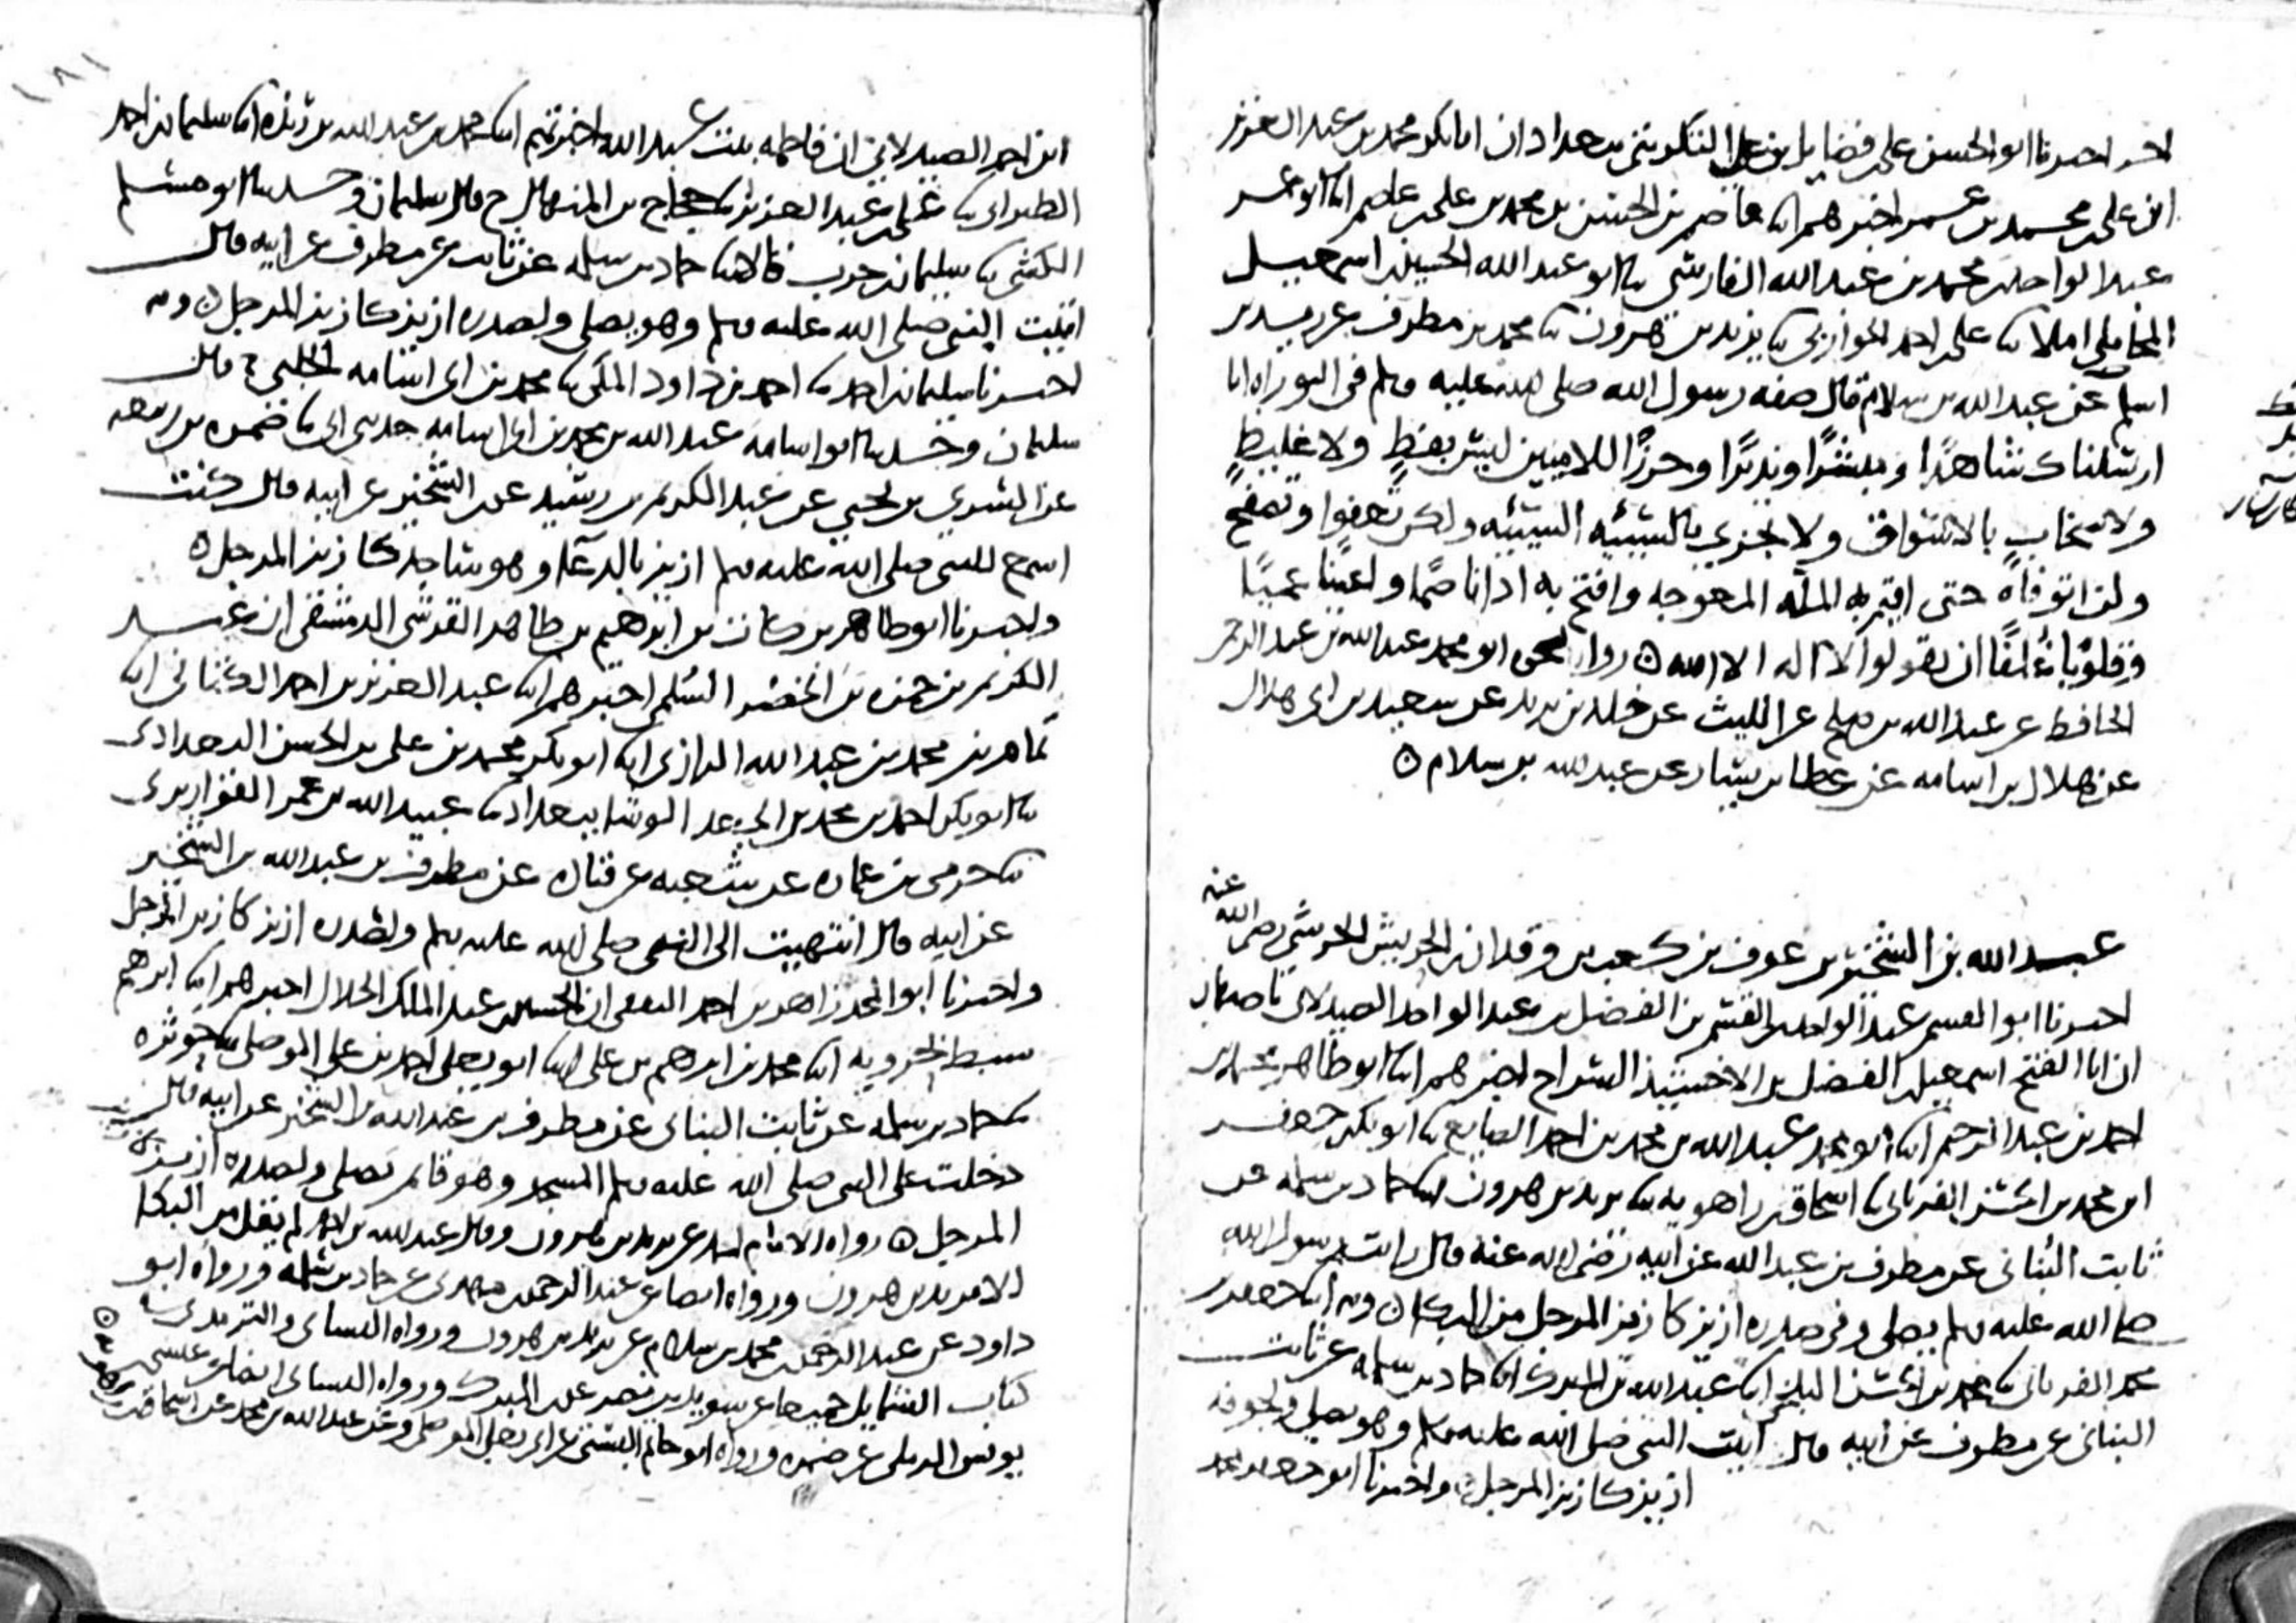 اخر اخبرنا ابو الحسن علي فضايل بن علي التكريتي ببغداد ان ابا بكر محمد بن عبد العزيز
ابن علي محمد بن عمر اخبرهم ابنا عاصم بن الحسن بن محمد بن علي بن عاصم ابنا ابو عمر
عبد الواحد بن محمد بن عبد الله الفارسي ثنا ابو عبد الله الحسين بن اسمعيل
المحاملي املا ثنا علي بن احمد الجواربي ثنا يزيد بن هرون ثنا محمد بن مطرف عن زيد بن
اسلم عن عبد الله بن سلام قال صفه رسول الله صلى الله عليه وسلم في التوراه انا
ارسلناك شاهدًا ومبشرًا ونذيرًا وحرزًا للاميين ليس بفظٍ ولا غليظٍ
ولا سخابٍ بالاسواق ولا يجزي بالسيئه السيئه ولكن تعفوا وتصفح
ولن اتوفاه حتى اقيم به المله المعوجه وافتح به اذانا صمًا واعينًا عميًا
وقلوبًا غلفًا ان يقولوا لا اله الا الله ۝ رواه ابو محمد عبد الله بن عبد الرحمن
الحافظ عن عبد الله بن صلح عن الليث عن خلد بن يزيد عن سعيد بن ابي هلال
عن هلال بن اسامه عن عطا بن يسار عن عبد الله بن سلام ۝
عبد الله بن الشخير بن عوف بن كعب بن وقدان بن الحريش الحرشي رضي الله عنه
اخبرنا ابو القسم عبد الواحد بن القسم بن الفضل بن عبد الواحد الصيدلاني باصبهان
ان ابا الفتح اسمعيل بن الفضل بن الاخشيذ السراج اخبرهم ابنا ابو طاهر محمد بن
احمد بن عبد الرحيم ابنا ابو محمد عبد الله بن محمد بن احمد الصايغ ثنا ابو بكر جعفر
ابن محمد بن الحسن الفريابي ثنا اسحاق بن راهويه ثنا يزيد بن هرون ابنا حماد بن سلمه عن
ثابت البناني عن مطرف بن عبد الله عن ابيه رضي الله عنه قال رايت رسول الله
صلى الله عليه وسلم يصلي وفي صدره ازيز كازيز المرجل من البكا ۝ وبه ابنا جعفر بن
محمد الفريابي ثنا محمد بن الحسن البلخي ابنا عبد الله بن المبارك ابنا حماد بن سلمه عن ثابت
البناني عن مطرف عن ابيه قال اتيت النبي صلى الله عليه وسلم وهو يصلي ولجوفه
ازيز كازيز المرجل ۝ واخبرنا ابو جعفر محمد
ابن احمد الصيدلاني ان فاطمه بنت عبد الله اخبرتهم ابنا محمد بن عبد الله بن ريذه ابنا سليمان بن احمد
الطبراني ثنا علي بن عبد العزيز ثنا حجاج بن المنهال ح قال سليمان وحدثنا ابو مسلم
الكشي ثنا سليمان بن حرب قالا ثنا حماد بن سلمه عن ثابت عن مطرف عن ابيه قال
اتيت النبي صلى الله عليه وسلم وهو يصلي ولصدره ازيز كازيز المرجل ۝ وبه
اخبرنا سليمان بن احمد ثنا احمد بن داود المكي ثنا محمد بن ابي اسامه الحلبي ح قال
سليمان وحدثنا ابو اسامه عبد الله بن محمد بن ابي اسامه حدثني ابي ثنا ضمره بن ربيعه
عن السري بن يحيى عن عبد الكريم بن رشيد عن الشخير عن ابيه قال كنت
اسمع للنبي صلى الله عليه وسلم ازيز بالدعا وهو ساجد كازيز المرجل ۝
واخبرنا ابو طاهر بركات بن ابرهيم بن طاهر القرشي الدمشقي ان عبد
الكريم بن حمزه بن الخضر السلمي اخبرهم ابنا عبد العزيز بن احمد الكتاني ابنا
تمام بن محمد بن عبد الله الرازي ابنا ابو بكر محمد بن علي بن الحسن البغدادي
ثنا ابو بكر احمد بن محمد بن الوشا ببغداد ثنا عبيد الله بن عمر القواريري
ثنا حرمي بن عماره عن شعبه عن قتاده عن مطرف بن عبد الله بن الشخير
عن ابيه قال انتهيت الى النبي صلى الله عليه وسلم ولصدره ازيز كازيز المرجل
واخبرنا ابو المجد زاهر بن احمد الثقفي ان الحسين بن عبد الملك الخلال اخبرهم ابنا ابرهيم
سبط بحرويه ابنا محمد بن ابرهيم بن علي ابنا ابو يعلى احمد بن علي الموصلي ثنا حوثره
ثنا حماد بن سلمه عن ثابت البناني عن مطرف بن عبد الله بن الشخير عن ابيه قال
دخلت على النبي صلى الله عليه وسلم المسجد وهو قايم يصلي ولصدره ازيز كازيز
المرجل ۝ رواه الامام احمد عن يزيد بن هرون وقال عبد الله بن احمد لم يقل من البكا
الا يزيد بن هرون ورواه ايضا عن عبد الرحمن بن مهدي عن حماد بن سلمه ورواه ابو
داود عن عبد الرحمن بن محمد بن سلام عن يزيد بن هرون ورواه النسائي والترمذي في
كتاب الشمايل جميعا عن سويد بن نصر عن ابن المبارك ورواه النسائي ايضا عن عيسى بن
يونس الرملي عن ضمره ورواه ابو حاتم البستي عن ابي يعلى الموصلي وعن عبد الله بن محمد عن اسحاق بن